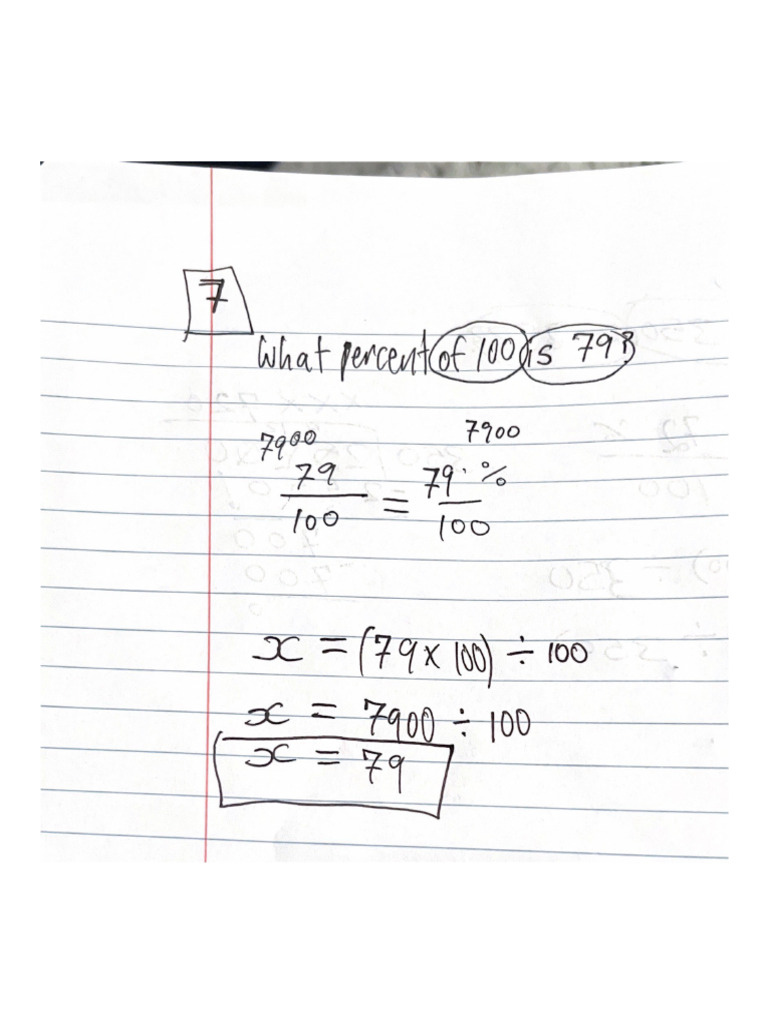 7
What percent of 100 is 79?
7900 7900
79/100 = 79.%/100
x = (79 x 100) ÷ 100
x = 7900 ÷ 100
x = 79